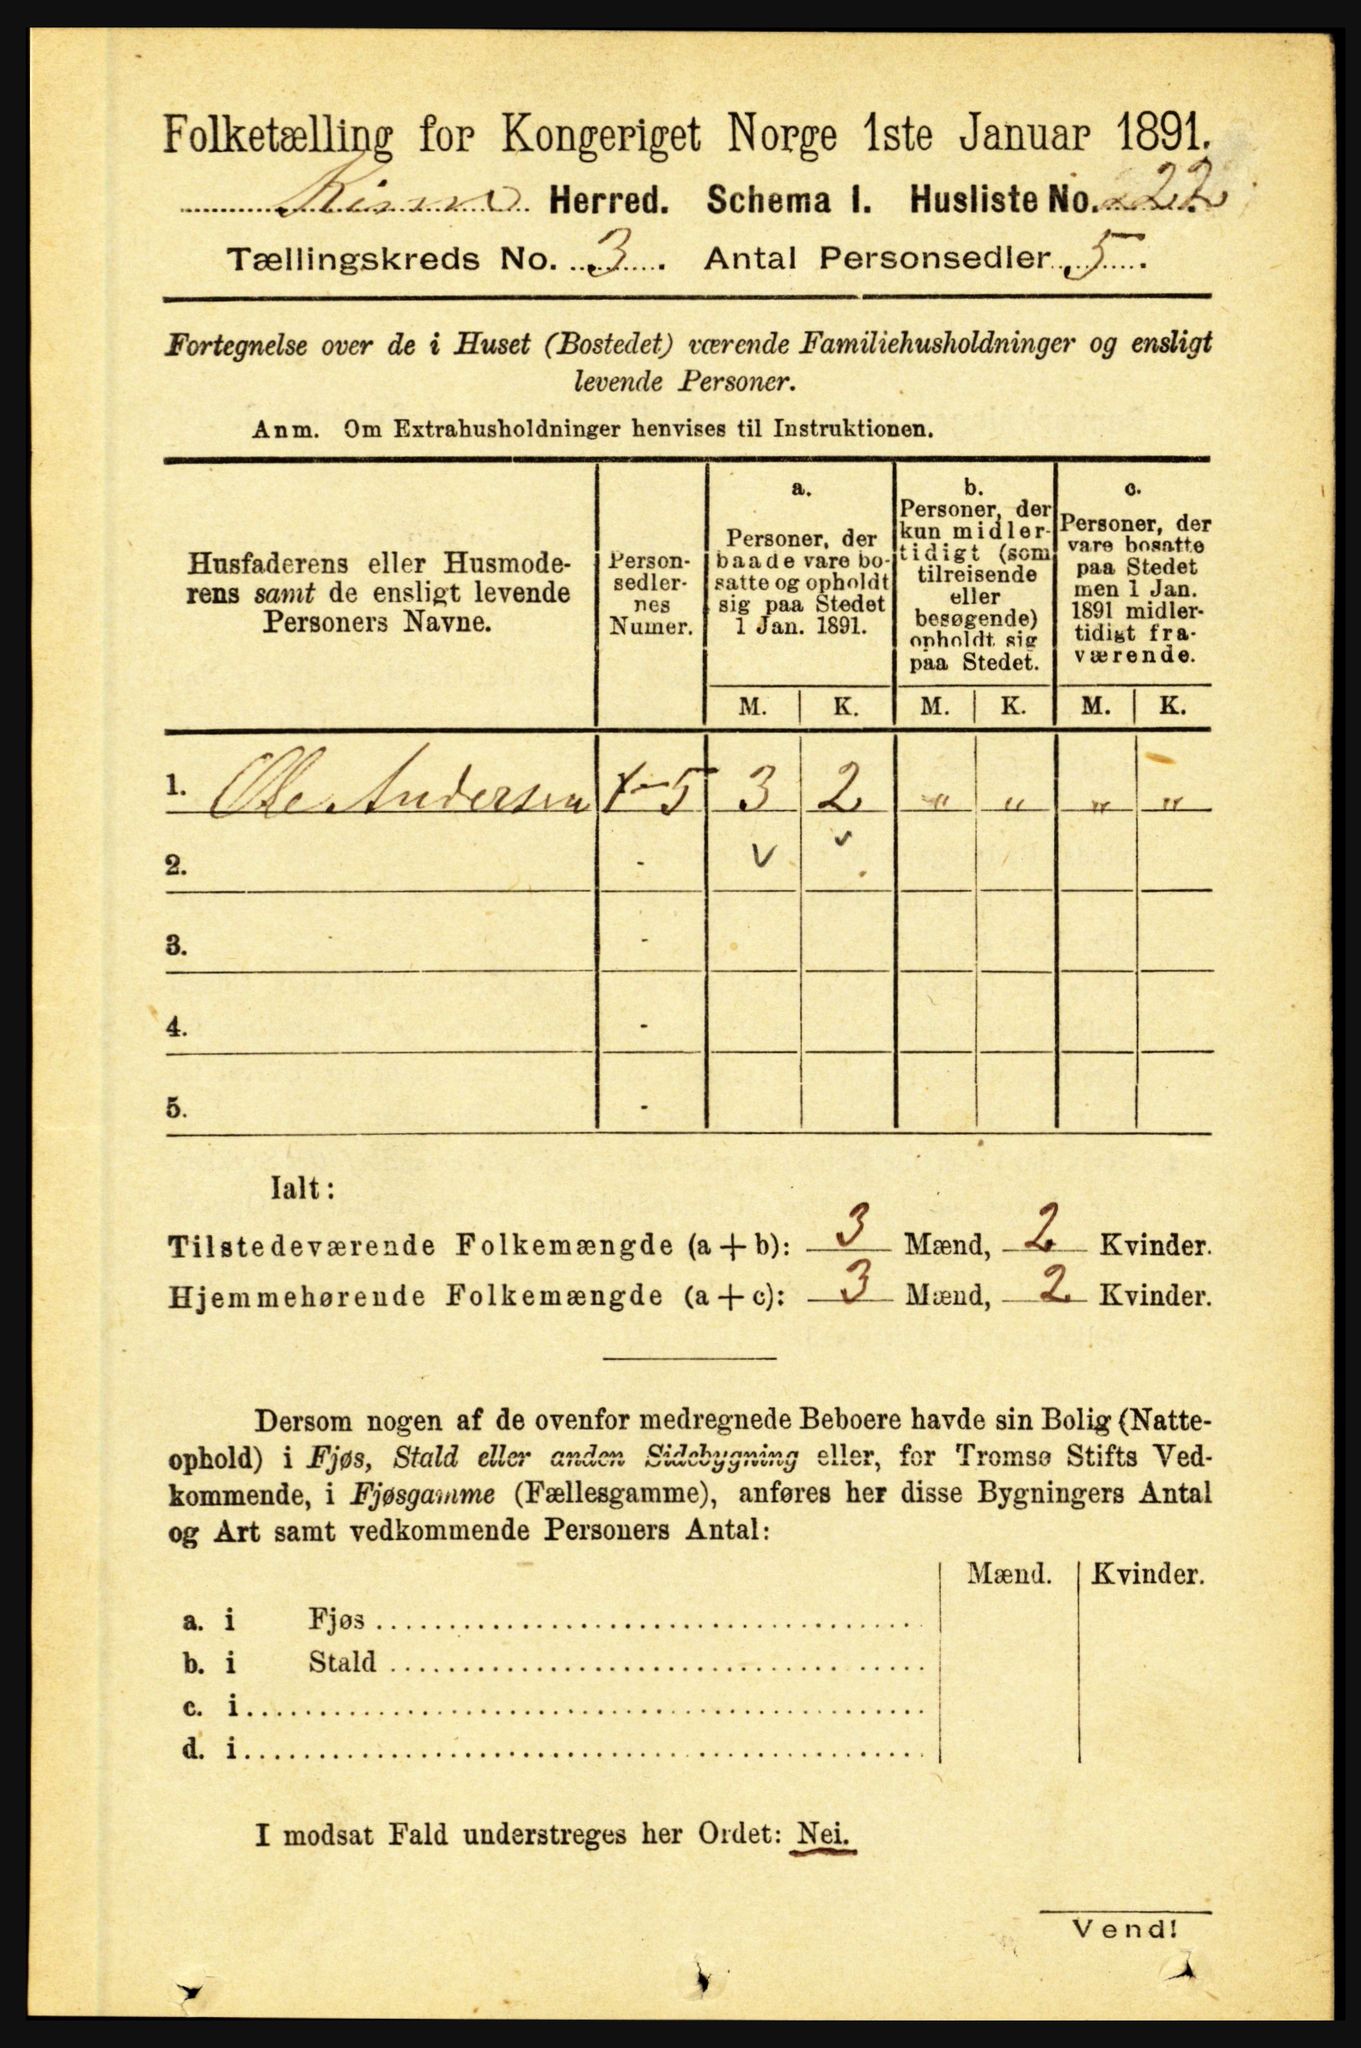 Folketælling for Kongeriget Norge 1ste Januar 1891.
Kinn Herred. Schema I. Husliste No. 22
Tællingskreds No. 3. Antal Personsedler 5.
Fortegnelse over de i Huset (Bostedet) værende Familiehusholdninger og ensligt
levende Personer.
Anm. Om Extrahusholdninger henvises til Instruktionen.
Husfaderens eller Husmode-
rens samt de ensligt levende
Personers Navne.
Person-
sedler-
nes
Numer.
a.
Personer, der
baade vare bo-
satte og opholdt
sig paa Stedet
1 Jan. 1891.
b.
Personer, der
kun midler-
tidigt (som
tilreisende
eller
besøgende)
opholdt sig
paa Stedet.
c.
Personer, der
vare bosatte
paa Stedet
men 1 Jan.
1891 midler-
tidigt fra-
værende.
M. K. M. K. M. K.
1. Ole Andersen 1-5 3 2 " " " "
2. - v v
3. -
4. -
5. -
Ialt:
Tilstedeværende Folkemængde (a+b): 3 Mænd, 2 Kvinder.
Hjemmehørende Folkemængde (a+c): 3 Mænd, 2 Kvinder.
Dersom nogen af de ovenfor medregnede Beboere havde sin Bolig (Natte-
ophold) i Fjøs, Stald eller anden Sidebygning eller, for Tromsø Stifts Ved-
kommende, i Fjøsgamme (Fællesgamme), anføres her disse Bygningers Antal
og Art samt vedkommende Personers Antal:
Mænd. Kvinder.
a. i Fjøs
b. i Stald
c. i
d. i
I modsat Fald understreges her Ordet: Nei.
Vend!